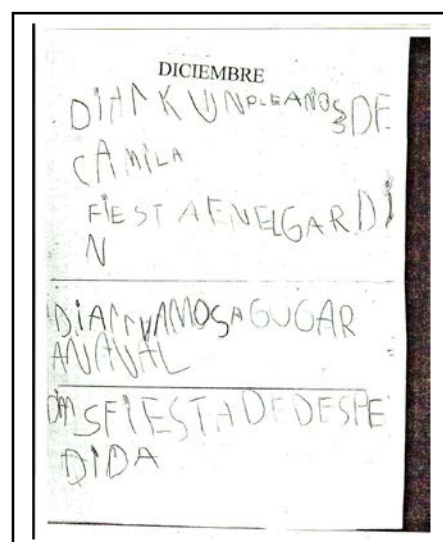 DICIEMBRE
KUNPLEAÑOS DE
CAMILA
FIESTA ENELGARDI
N
VAMOSA GUGAR
ANAVAL
FIESTA DE DESPE
DIDA